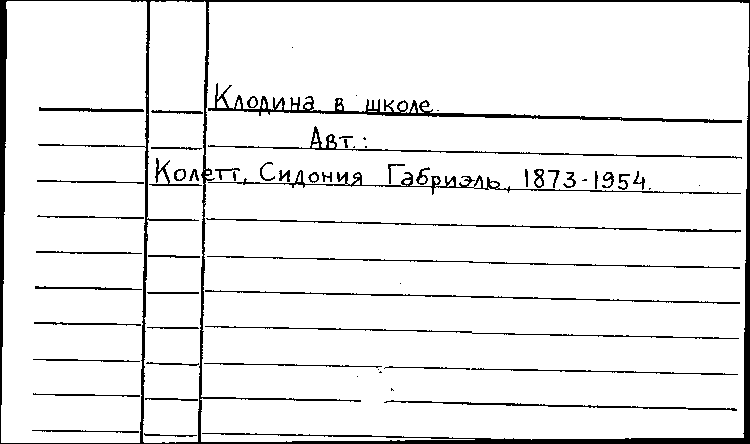 Клодина в школе.
Авт.:
Колетт, Сидония Габриэль, 1873-1954.